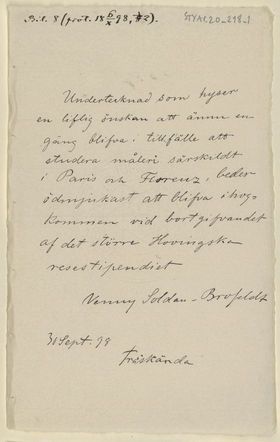 Bil. 8 (prot. 18 6/X 98, § 2).
Undertecknad som hyser
en liflig önskan att ännu en
gång blifva i tillfälle att
studera måleri särskildt
i Paris och Florenz, beder
ödmjukast att blifva ihog-
kommen vid bortgifvandet
af det större Hovingska
resestipendiet
Venny Soldan-Brofeldt
30 Sept. 98
Träskända